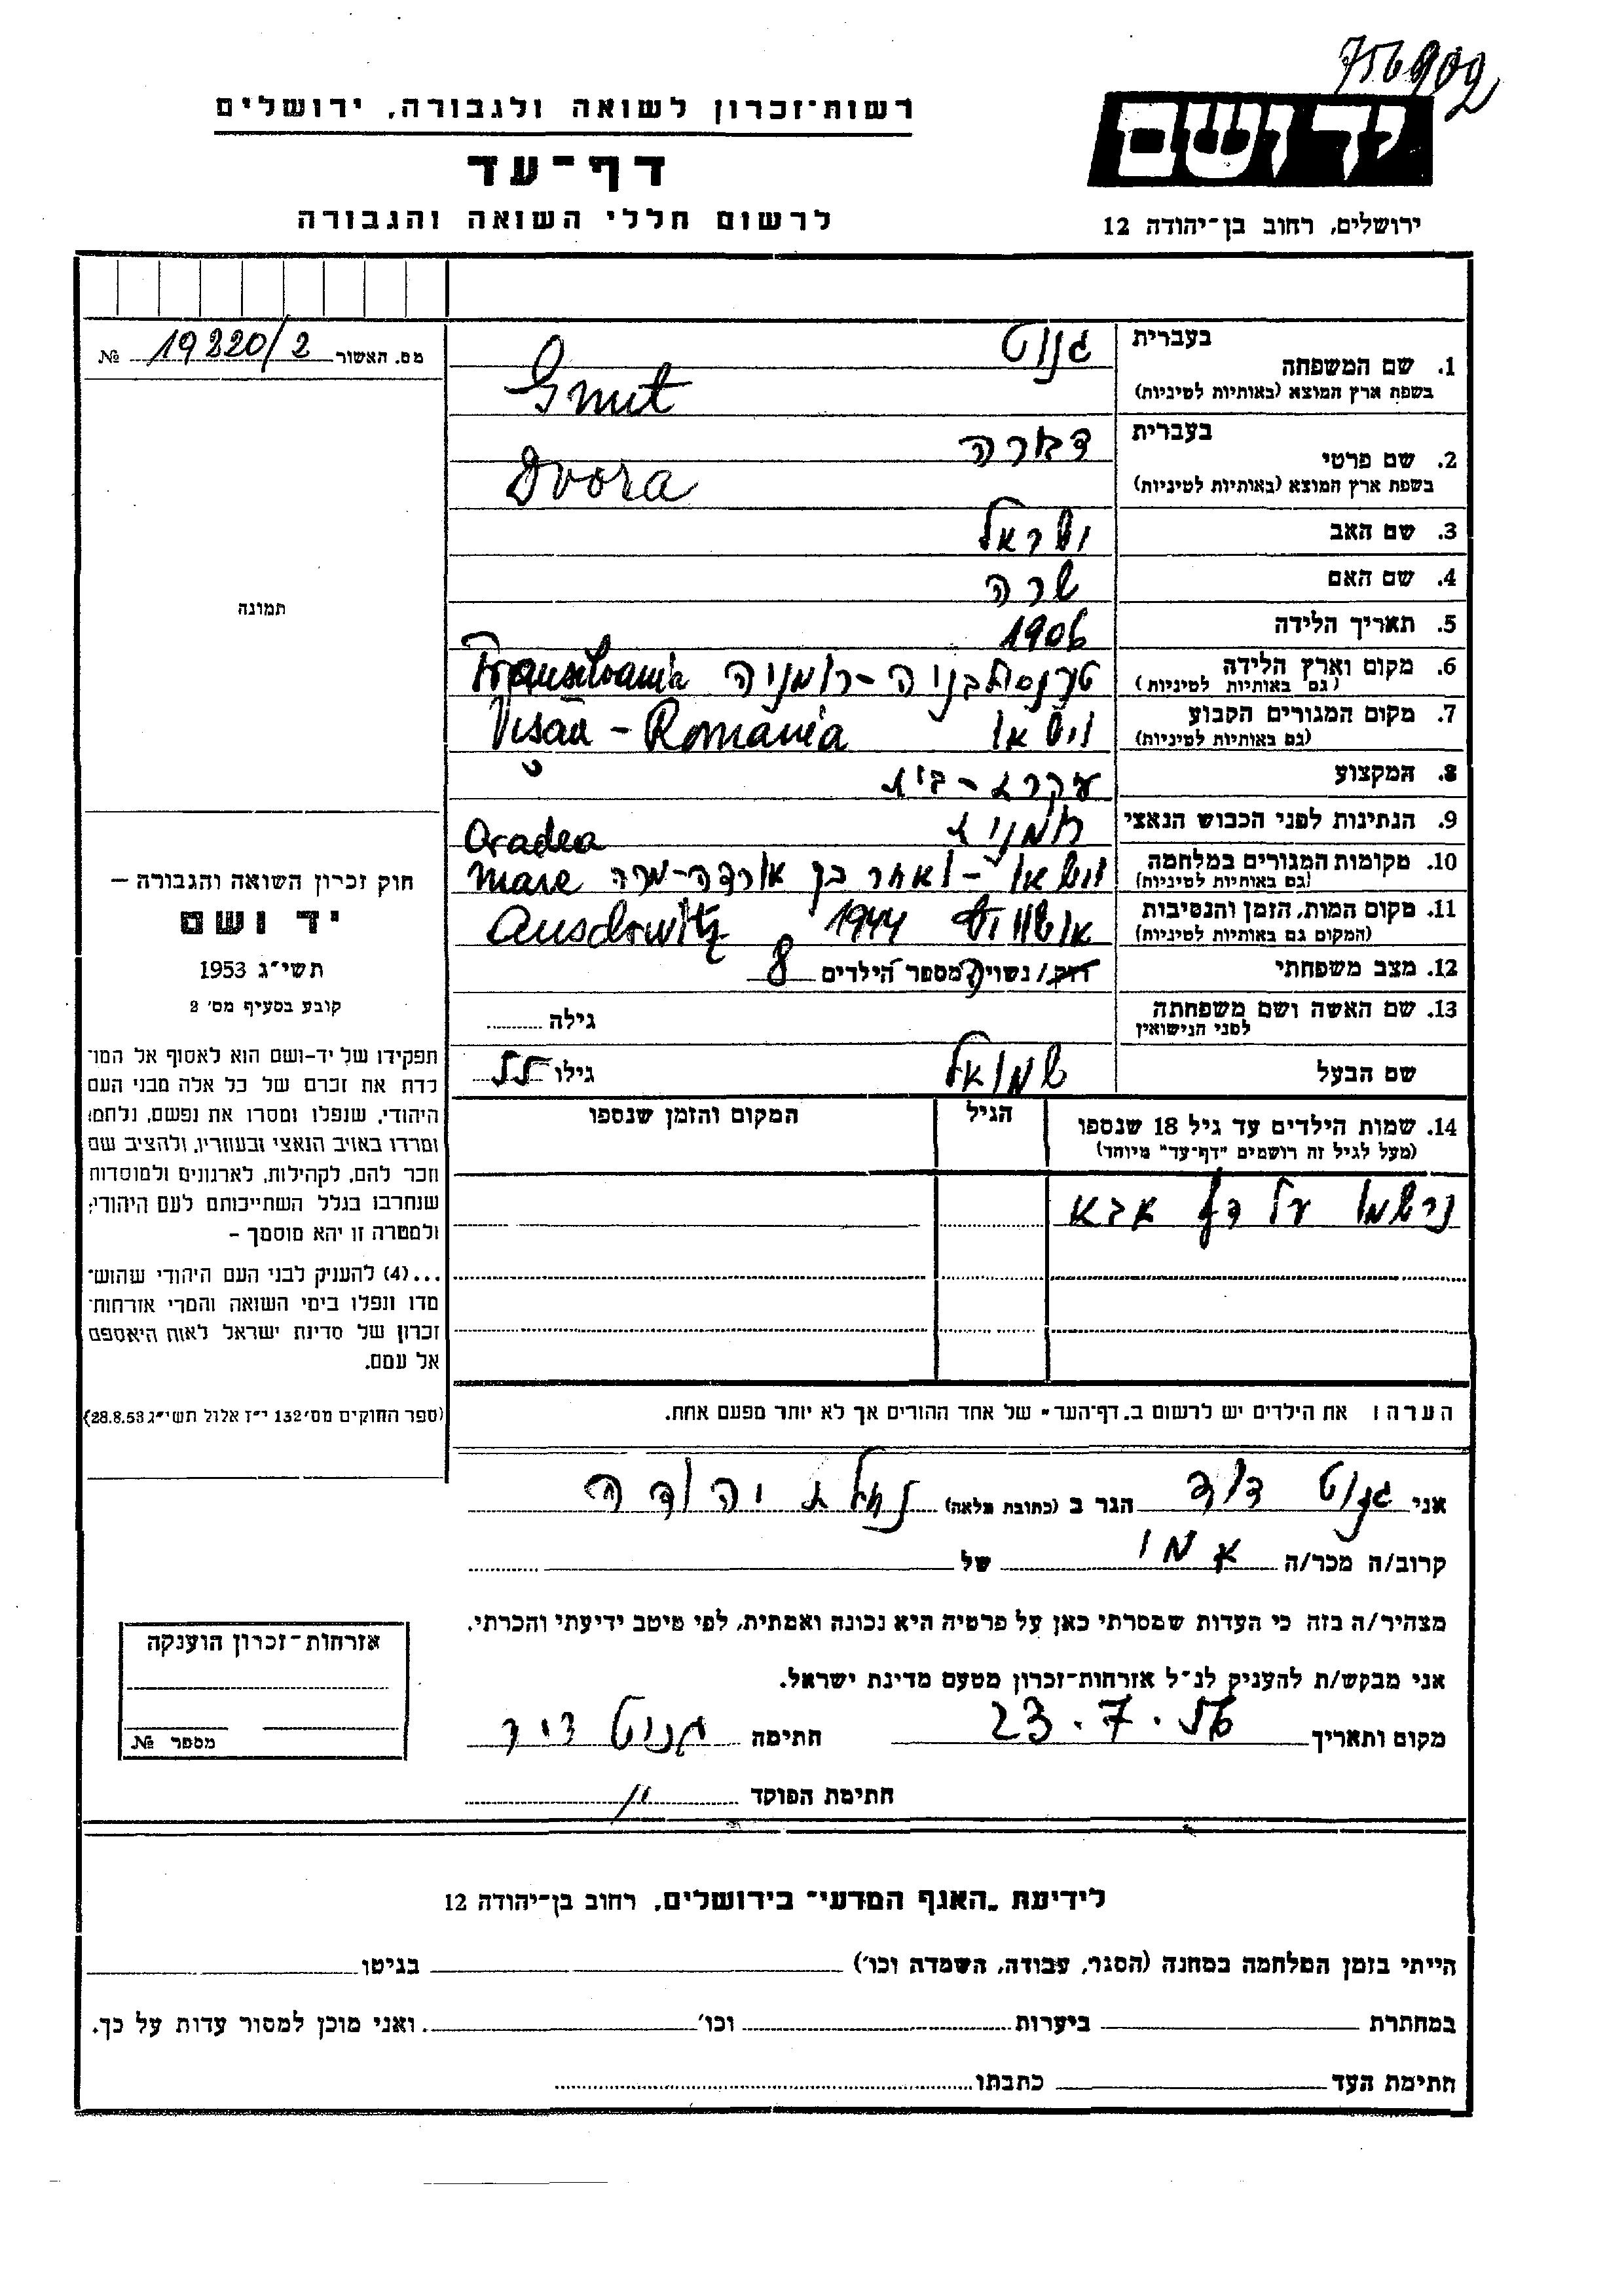 756902
יד ושם
ירושלים, רחוב בן־יהודה 12
רשות־זכרון לשואה ולגבורה, ירושלים
דף־עד
לרשום חללי השואה והגבורה
מס. האשור 19220/2 №
תמונה
חוק זכרון השואה והגבורה —
יד ושם
תשי״ג 1953
קובע בסעיף מס׳ 2
תפקידו של יד-ושם הוא לאסוף אל המו־
לדת את זכרם של כל אלה מבני העם
היהודי, שנפלו ומסרו את נפשם, נלחמו
ומרדו באויב הנאצי ובעוזריו, ולהציב שם
וזכר להם, לקהילות, לארגונים ולמוסדות
שנחרבו בגלל השתייכותם לעם היהודי;
ולמטרה זו יהא מוסמך —
...(4) להעניק לבני העם היהודי שהוש־
מדו ונפלו בימי השואה והמרי אזרחות־
זכרון של מדינת ישראל לאות היאספם
אל עמם.
(ספר החוקים מס׳ 132 י״ז אלול תשי״ג 28.8.53)
בעברית גנוט
1. שם המשפחה
בשפת ארץ המוצא (באותיות לטיניות) Gnut
בעברית דבורה
2. שם פרטי
בשפת ארץ המוצא (באותיות לטיניות) Dvora
3. שם האב ישראל
4. שם האם שרה
5. תאריך הלידה 1906
6. מקום וארץ הלידה טרנסלבניה-רומניה Transilvania
(גם באותיות לטיניות)
7. מקום המגורים הקבוע וישאו Visău - Romania
(גם באותיות לטיניות)
8. המקצוע עקרת-בית
9. הנתינות לפני הכבוש הנאצי רומנית
10. מקומות המגורים במלחמה וישאו - ואחר כך אורדה-מרה Oradea mare
(גם באותיות לטיניות)
11. מקום המות, הזמן והנסיבות אושוויץ 1944 Auschwitz
(המקום גם באותיות לטיניות)
12. מצב משפחתי רוק / נשוי ה מספר הילדים 8
13. שם האשה ושם משפחתה גילה
לפני הנישואין
שם הבעל שמואל גילו 55
14. שמות הילדים עד גיל 18 שנספו הגיל המקום והזמן שנספו
(מעל לגיל זה רושמים ״דף־עד״ מיוחד)
נרשמו על דף אבא
הערה: את הילדים יש לרשום ב„דף־העד״ של אחד ההורים אך לא יותר מפעם אחת.
אני גנוט דוד הגר ב (כתובת מלאה) נחלת יהודה
קרוב/ה מכר/ה אמו של
מצהיר/ה בזה כי העדות שמסרתי כאן על פרטיה היא נכונה ואמתית, לפי מיטב ידיעתי והכרתי.
אני מבקש/ת להעניק לנ״ל אזרחות־זכרון מטעם מדינת ישראל.
מקום ותאריך 23.7.56 חתימה גנוט דוד
חתימת הפוקד
אזרחות־זכרון הוענקה
מספר №
לידיעת „האגף המדעי״ בירושלים, רחוב בן־יהודה 12
הייתי בזמן המלחמה במחנה (הסגר, עבודה, השמדה וכו׳) בגיטו
במחתרת ביערות וכו׳ ואני מוכן למסור עדות על כך.
חתימת העד כתבתו